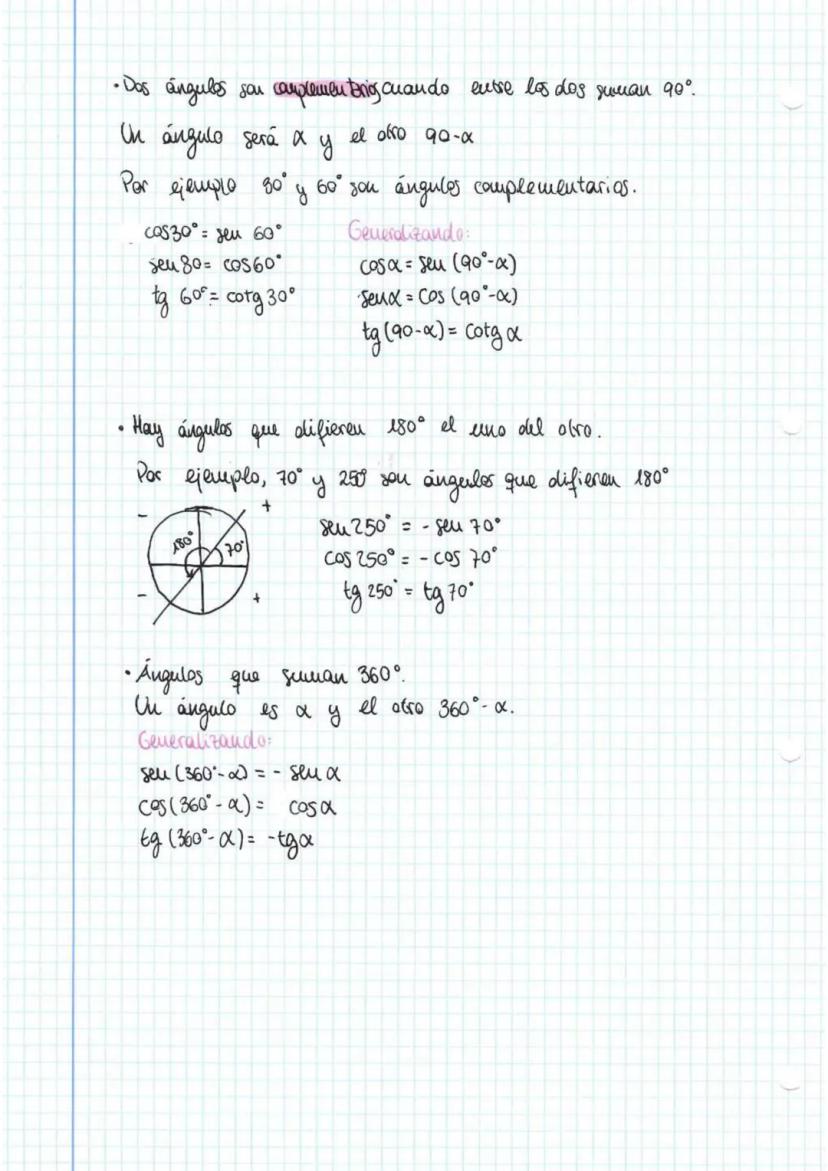 · Dos ángulos son complementarios cuando entre los dos suman 90°.
Un ángulo será α y el otro 90-α
Por ejemplo 30° y 60° son ángulos complementarios.
cos30° = sen 60°
sen 30 = cos 60°
tg 60° = cotg 30°
Generalizando:
cosα = sen (90°-α)
senα = cos (90°-α)
tg (90-α) = cotg α
· Hay ángulos que difieren 180° el uno del otro.
Por ejemplo, 70° y 250° son ángulos que difieren 180°
- +
180° 70°
- +
sen 250° = - sen 70°
cos 250° = - cos 70°
tg 250° = tg 70°
· Ángulos que suman 360°.
Un ángulo es α y el otro 360° - α.
Generalizando:
sen (360° - α) = - sen α
cos (360° - α) = cos α
tg (360° - α) = - tg α